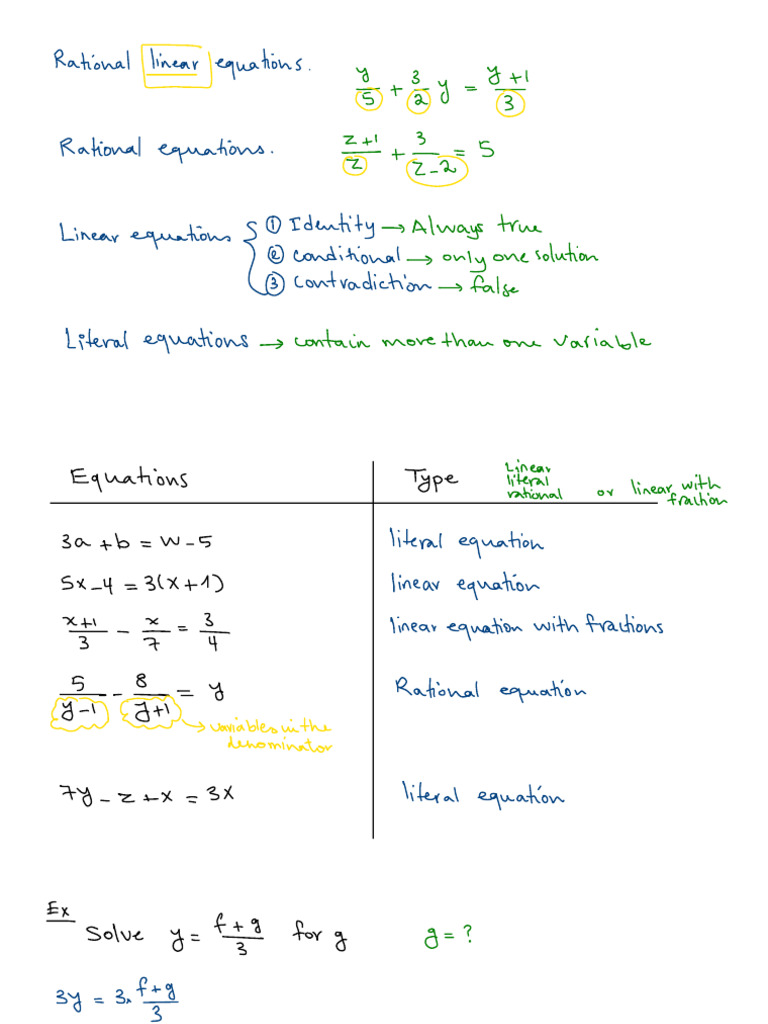 Rational linear equations. y/5 + 3/2 y = y+1/3
Rational equations. z+1/z + 3/z-2 = 5
Linear equations { ① Identity → Always true
② conditional → only one solution
③ contradiction → false
Literal equations → contain more than one variable
Equations Type Linear literal rational or linear with fraction
3a + b = w - 5 literal equation
5x - 4 = 3(x + 1) linear equation
x+1/3 - x/7 = 3/4 linear equation with fractions
5/y-1 - 8/y+1 = y Rational equation
→ variables in the
denominator
7y - z + x = 3x literal equation
Ex
Solve y = f+g/3 for g g = ?
3y = 3. f+g/3